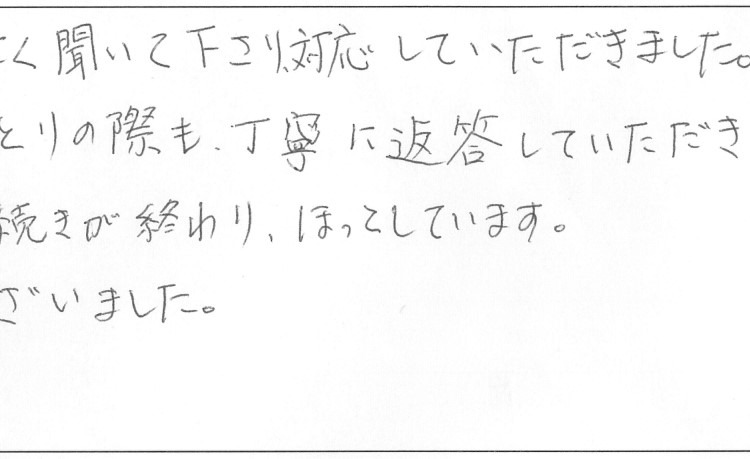 く聞いて下さり、対応していただきました。
とりの際も、丁寧に返答していただき
続きが終わり、ほっとしています。
ざいました。